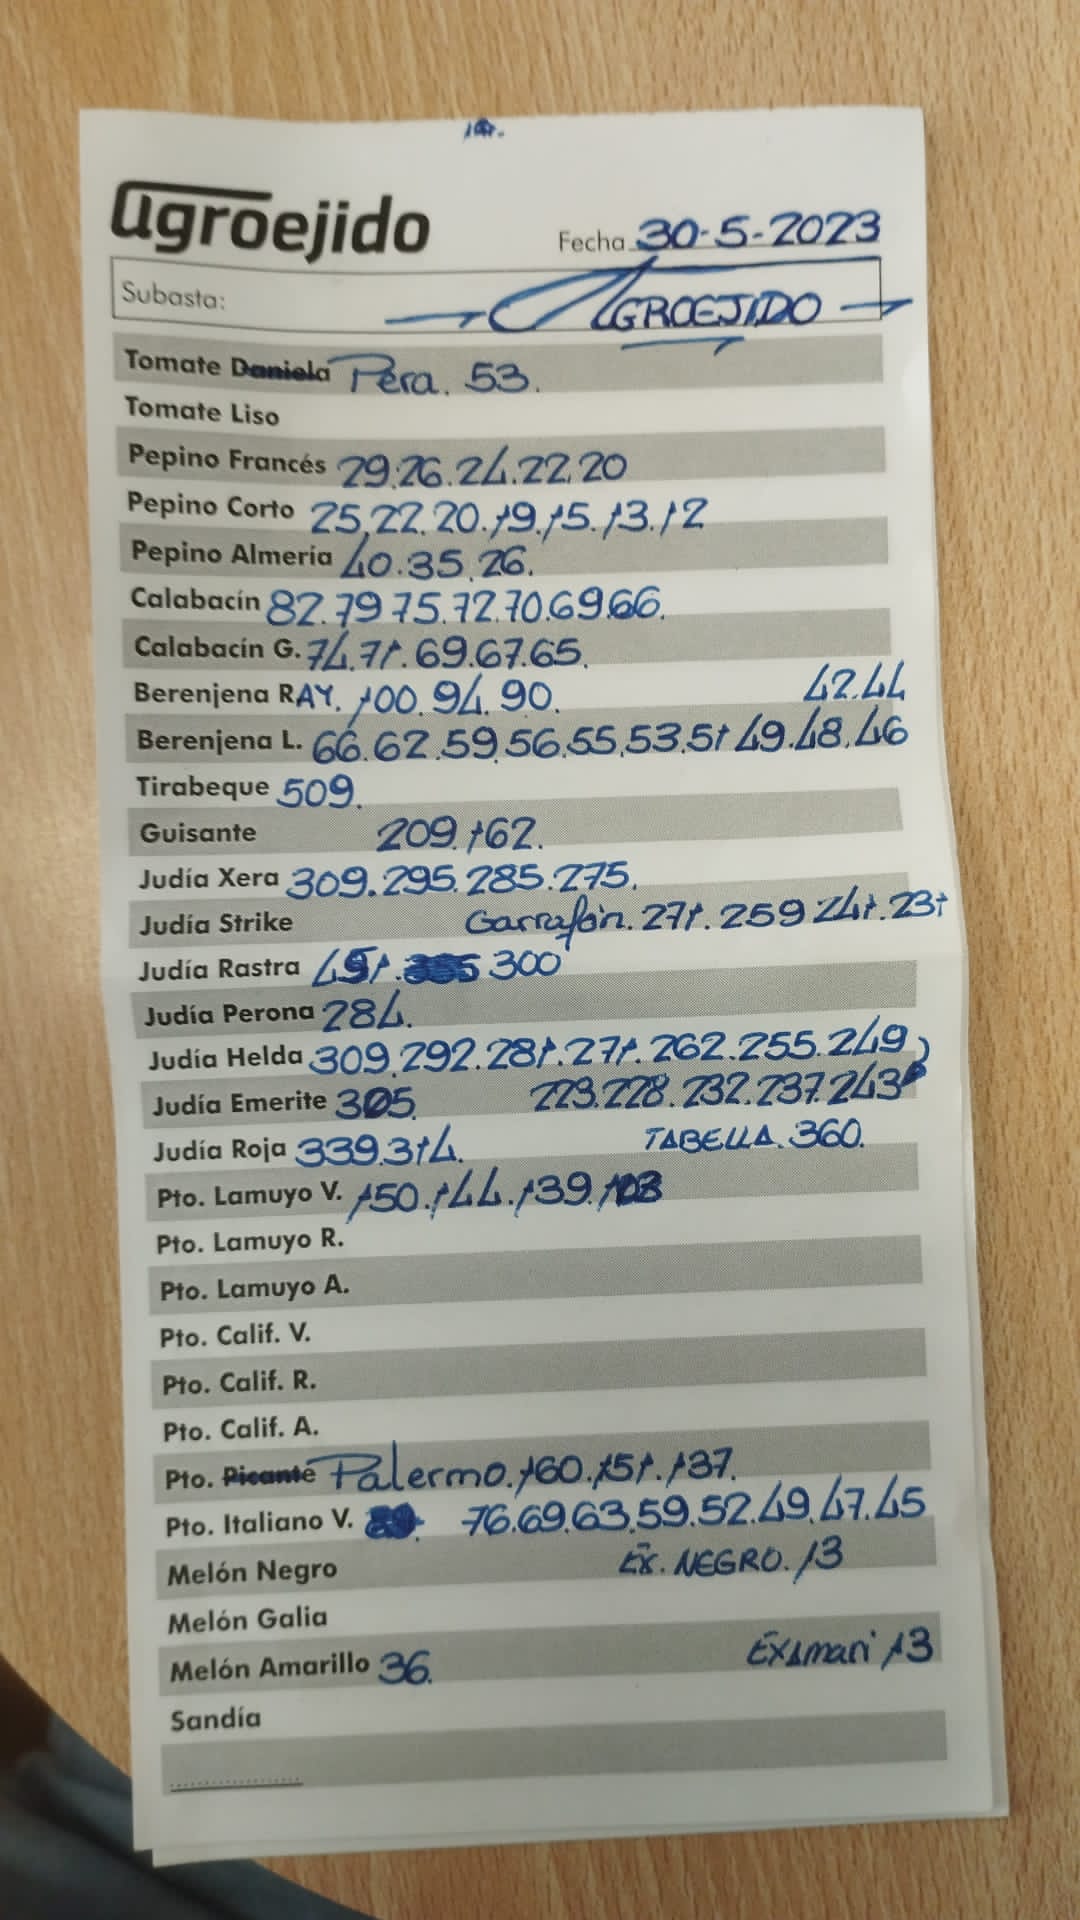 agroejido
Fecha 30-5-2023
Subasta: AGROEJIDO
Tomate Daniela Pera. 53.
Tomate Liso
Pepino Francés 29.26.24.22.20
Pepino Corto 25.22.20.19.15.13.12
Pepino Almería 40.35.26.
Calabacín 82.79.75.72.70.69.66.
Calabacín G. 74.71.69.67.65.
Berenjena RAY. 100.94.90. 42.44
Berenjena L. 66.62.59.56.55.53.51 49.48.46
Tirabeque 509.
Guisante 209.162.
Judía Xera 309.295.285.275.
Judía Strike Garrafón. 271.259 241.231
Judía Rastra 300
Judía Perona 284.
Judía Helda 309.292.281.271.262.255.249
Judía Emerite 305. 223.228.232.237.243
Judía Roja 339.314. TABELLA. 360.
Pto. Lamuyo V. 150.144.139.
Pto. Lamuyo R.
Pto. Lamuyo A.
Pto. Calif. V.
Pto. Calif. R.
Pto. Calif. A.
Pto. Picante Palermo. 160.151.137.
Pto. Italiano V. 76.69.63.59.52.49.47.45
Melón Negro EX. NEGRO. 13
Melón Galia
Melón Amarillo 36. EXAmari 13
Sandía